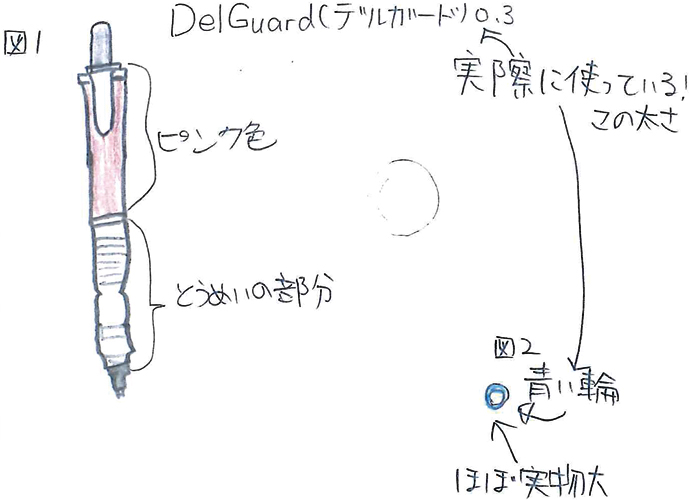 図1
DelGuard(デルガード)0.3
実際に使っている!
この太さ
ピンク色
とうめいの部分
図2
青い輪
ほぼ実物大